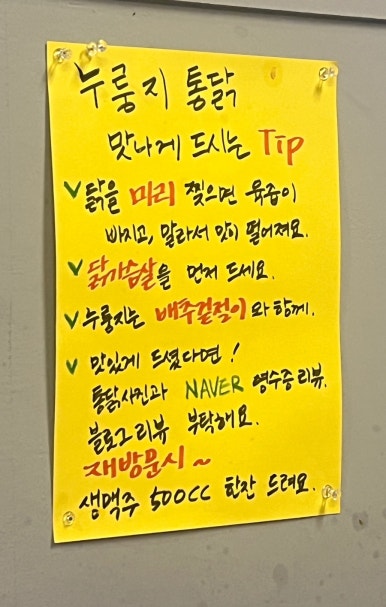 누룽지 통닭
맛나게 드시는 Tip
✓ 닭을 미리 찢으면 육즙이
빠지고, 말라서 맛이 떨어져요.
✓ 닭가슴살을 먼저 드세요.
✓ 누룽지는 배추겉절이와 함께.
✓ 맛있게 드셨다면!
통닭사진과 NAVER 영수증리뷰.
블로그리뷰 부탁해요.
재방문시~
생맥주 500CC 한잔 드려요.